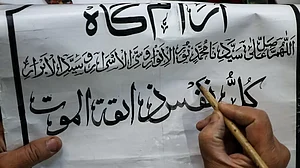 آرام گاه
اللهم صل علی سیدنا محمد نور الانوار و سر الاسرار و سید الابرار
کل نفس ذائقة الموت